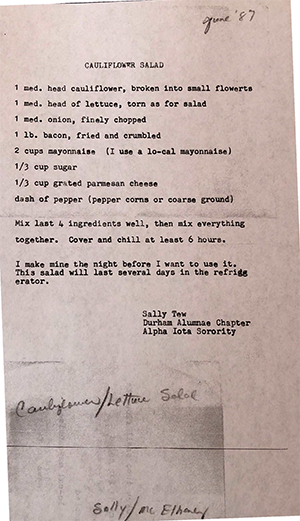 June '87
CAULIFLOWER SALAD
1 med. head cauliflower, broken into small flowerts
1 med. head of lettuce, torn as for salad
1 med. onion, finely chopped
1 lb. bacon, fried and crumbled
2 cups mayonnaise (I use a lo-cal mayonnaise)
1/3 cup sugar
1/3 cup grated parmesan cheese
dash of pepper (pepper corns or coarse ground)
Mix last 4 ingredients well, then mix everything
together. Cover and chill at least 6 hours.
I make mine the night before I want to use it.
This salad will last several days in the refrigg
erator.
Sally Tew
Durham Alumnae Chapter
Alpha Iota Sorority
Cauliflower/Lettuce Salad
Sally/Mc Elhaney